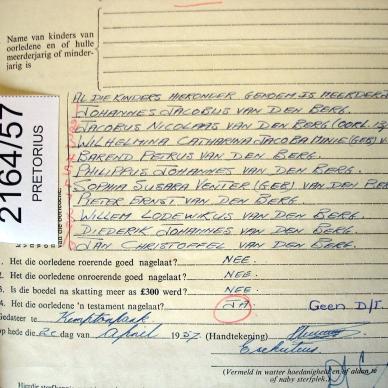 Name van kinders van
oorledene en of hulle
meerderjarig of minder-
jarig is
2164/57
PRETORIUS
AL DIE KINDERS HIERONDER GENOEM IS MEERDERJ
JOHANNES JACOBUS VAN DEN BERG.
JACOBUS NICOLAAS VAN DEN BERG (OORL.
WILHELMINA CATHARINA JACOBA (GEB) V
BAREND PETRUS VAN DEN BERG.
PHILIPPUS JOHANNES VAN DEN BERG.
SOPHIA SUSARA VENTER (GEB) VAN DEN BE
PIETER ERNST VAN DEN BERG.
WILLEM LODEWIKUS VAN DEN BERG.
DIEDERIK JOHANNES VAN DEN BERG.
JAN CHRISTOFFEL VAN DEN BERG.
van die oorledene.
1. Het die oorledene roerende goed nagelaat? NEE.
2. Het die oorledene onroerende goed nagelaat? NEE.
3. Is die boedel na skatting meer as £300 werd? NEE.
4. Het die oorledene 'n testament nagelaat? JA Geen D/T.
Gedateer te Kemptonpark
op hede die dag van April 1957. (Handtekening)
Executeur
(Vermeld in watter hoedanigheid en of aldan
of naby sterfplek